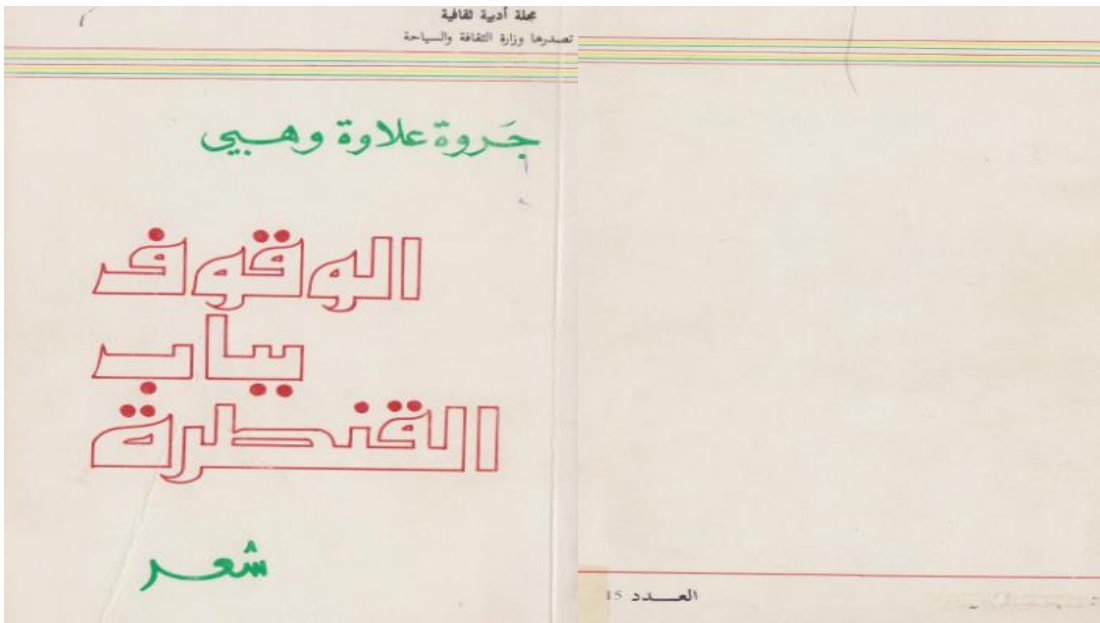 مجلة أدبية ثقافية
تصدرها وزارة الثقافة والسياحة
جَروة علاوة وهبي
الوقوف
بباب
القنطرة
شعر
العدد 15